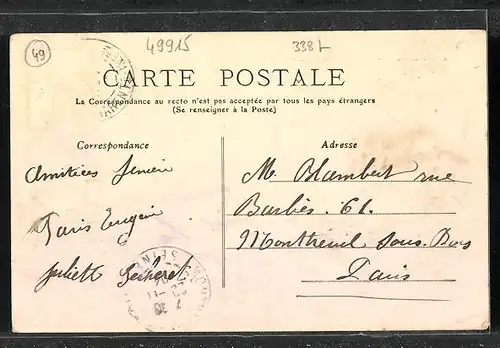 49
49915
338L
CARTE POSTALE
La Correspondance au recto n'est pas acceptée par tous les pays étrangers
(Se renseigner à la Poste)
Correspondance
Adresse
Amitiées
M. Blambert rue
Barbès. 61.
Montreuil sous Bois
Paris
Juliette